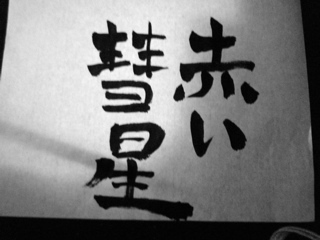 赤い
彗星